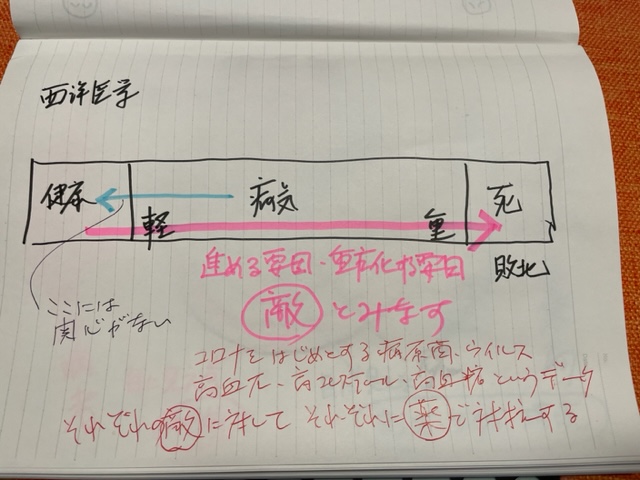 西洋医学
健康 病気 死
軽 重
進める要因・重症化する要因
敗北
敵とみなす
ここには
関心がない
コロナをはじめとする病原菌、ウイルス
高血圧、高コレステロール、高血糖というデータ
それぞれの敵に対してそれぞれに薬で対抗する